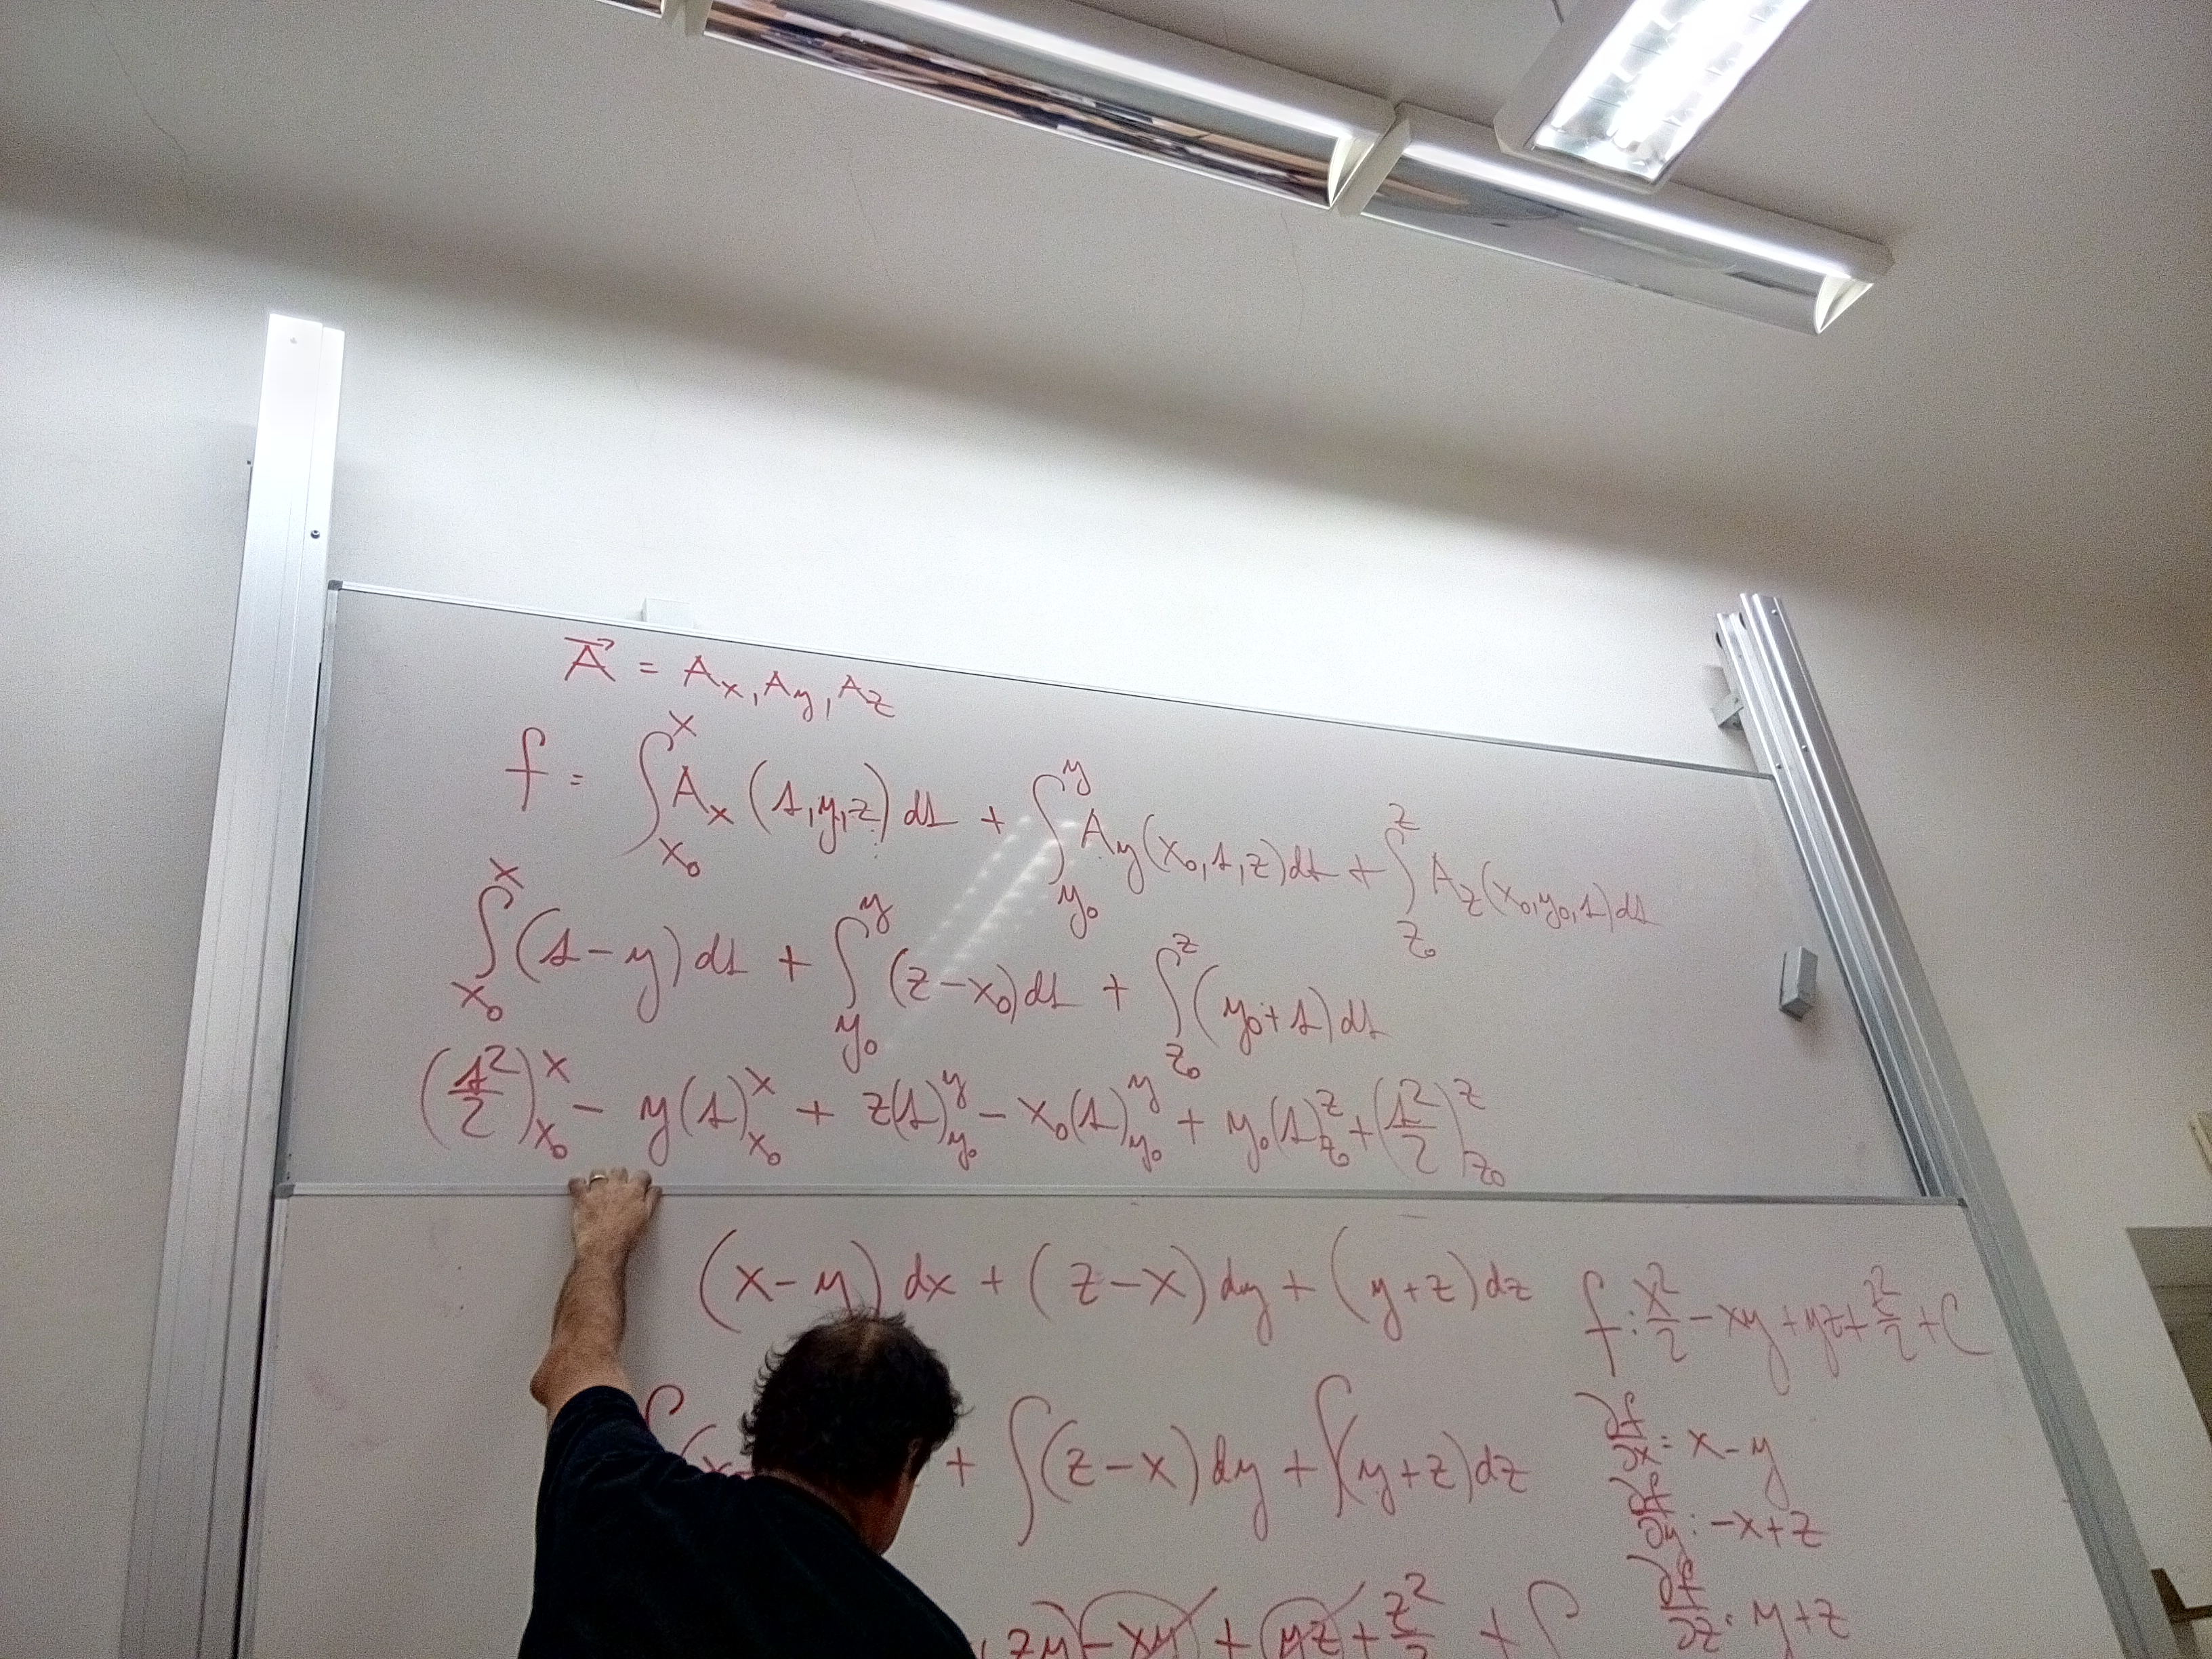 A⃗ = Aₓ, A_y, A_z
f = ∫_{x₀}^{x} Aₓ(s,y,z) ds + ∫_{y₀}^{y} A_y(x₀,s,z) ds + ∫_{z₀}^{z} A_z(x₀,y₀,s) ds
∫_{x₀}^{x} (s-y) ds + ∫_{y₀}^{y} (z-x₀) ds + ∫_{z₀}^{z} (y₀+s) ds
(s²/2)_{x₀}^{x} - y(s)_{x₀}^{x} + z(s)_{y₀}^{y} - x₀(s)_{y₀}^{y} + y₀(s)_{z₀}^{z} + (s²/2)_{z₀}^{z}
(x-y) dx + (z-x) dy + (y+z) dz
f: x²/2 - xy + yz + z²/2 + C
∫(x + ∫(z-x) dy + ∫(y+z) dz
∂f/∂x = x-y
∂f/∂y: -x+z
zy - xy + yz + z²/2 + C
∂f/∂z: y+z